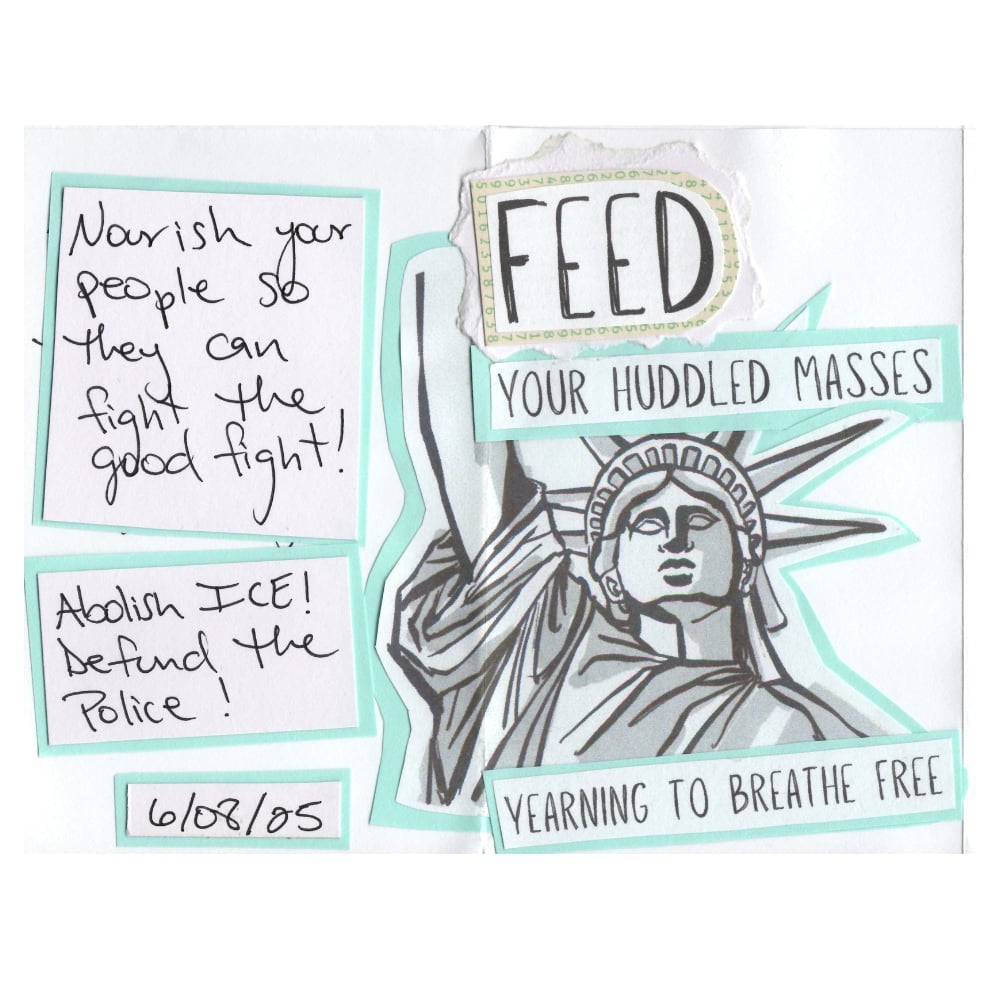 Nourish your
people so
they can
fight the
good fight!
Abolish ICE!
Defund the
Police!
6/08/25
FEED
YOUR HUDDLED MASSES
YEARNING TO BREATHE FREE